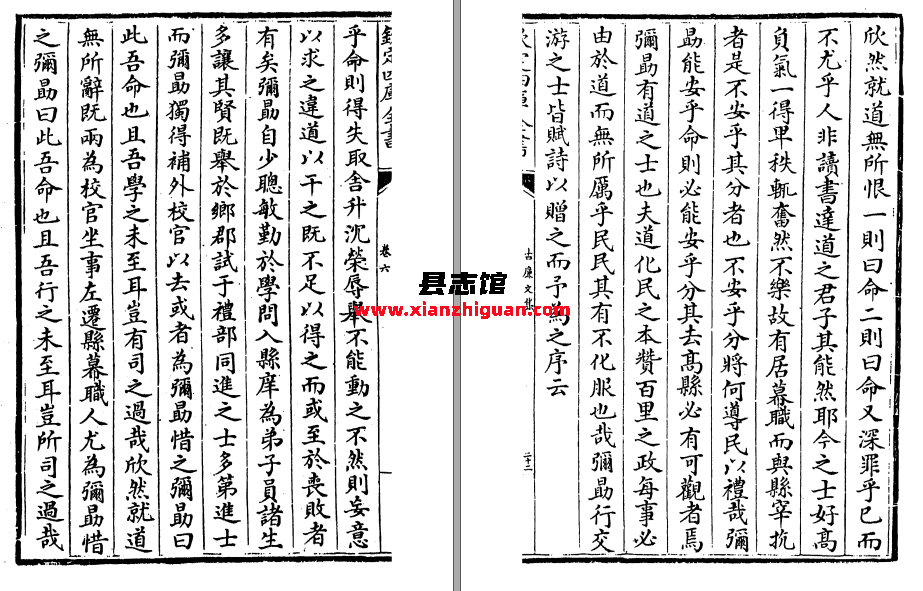 欽定四庫全書
卷六
乎命則得失取舍升沈榮辱舉不能動之不然則妄意
以求之違道以干之既不足以得之而或至於喪敗者
有矣彌勗自少聰敏勤於學問入縣庠為弟子員諸生
多讓其賢既舉於鄉郡試于禮部同進之士多第進士
而彌勗獨得補外校官以去或者為彌勗惜之彌勗曰
此吾命也且吾學之未至耳豈有司之過哉欣然就道
無所辭既兩為校官坐事左遷縣幕職人尤為彌勗惜
之彌勗曰此吾命也且吾行之未至耳豈所司之過哉
欣然就道無所恨一則曰命二則曰命又深罪乎已而
不尤乎人非讀書達道之君子其能然耶今之士好高
負氣一得卑秩輒奮然不樂故有居幕職而與縣宰抗
者是不安乎其分者也不安乎分將何導民以禮哉彌
勗能安乎命則必能安乎分其去高縣必有可觀者焉
彌勗有道之士也夫道化民之本贊百里之政每事必
由於道而無所厲乎民民其有不化服也哉彌勗行交
游之士皆賦詩以贈之而予為之序云
古廉文集
县志馆
www.xianzhiguan.com